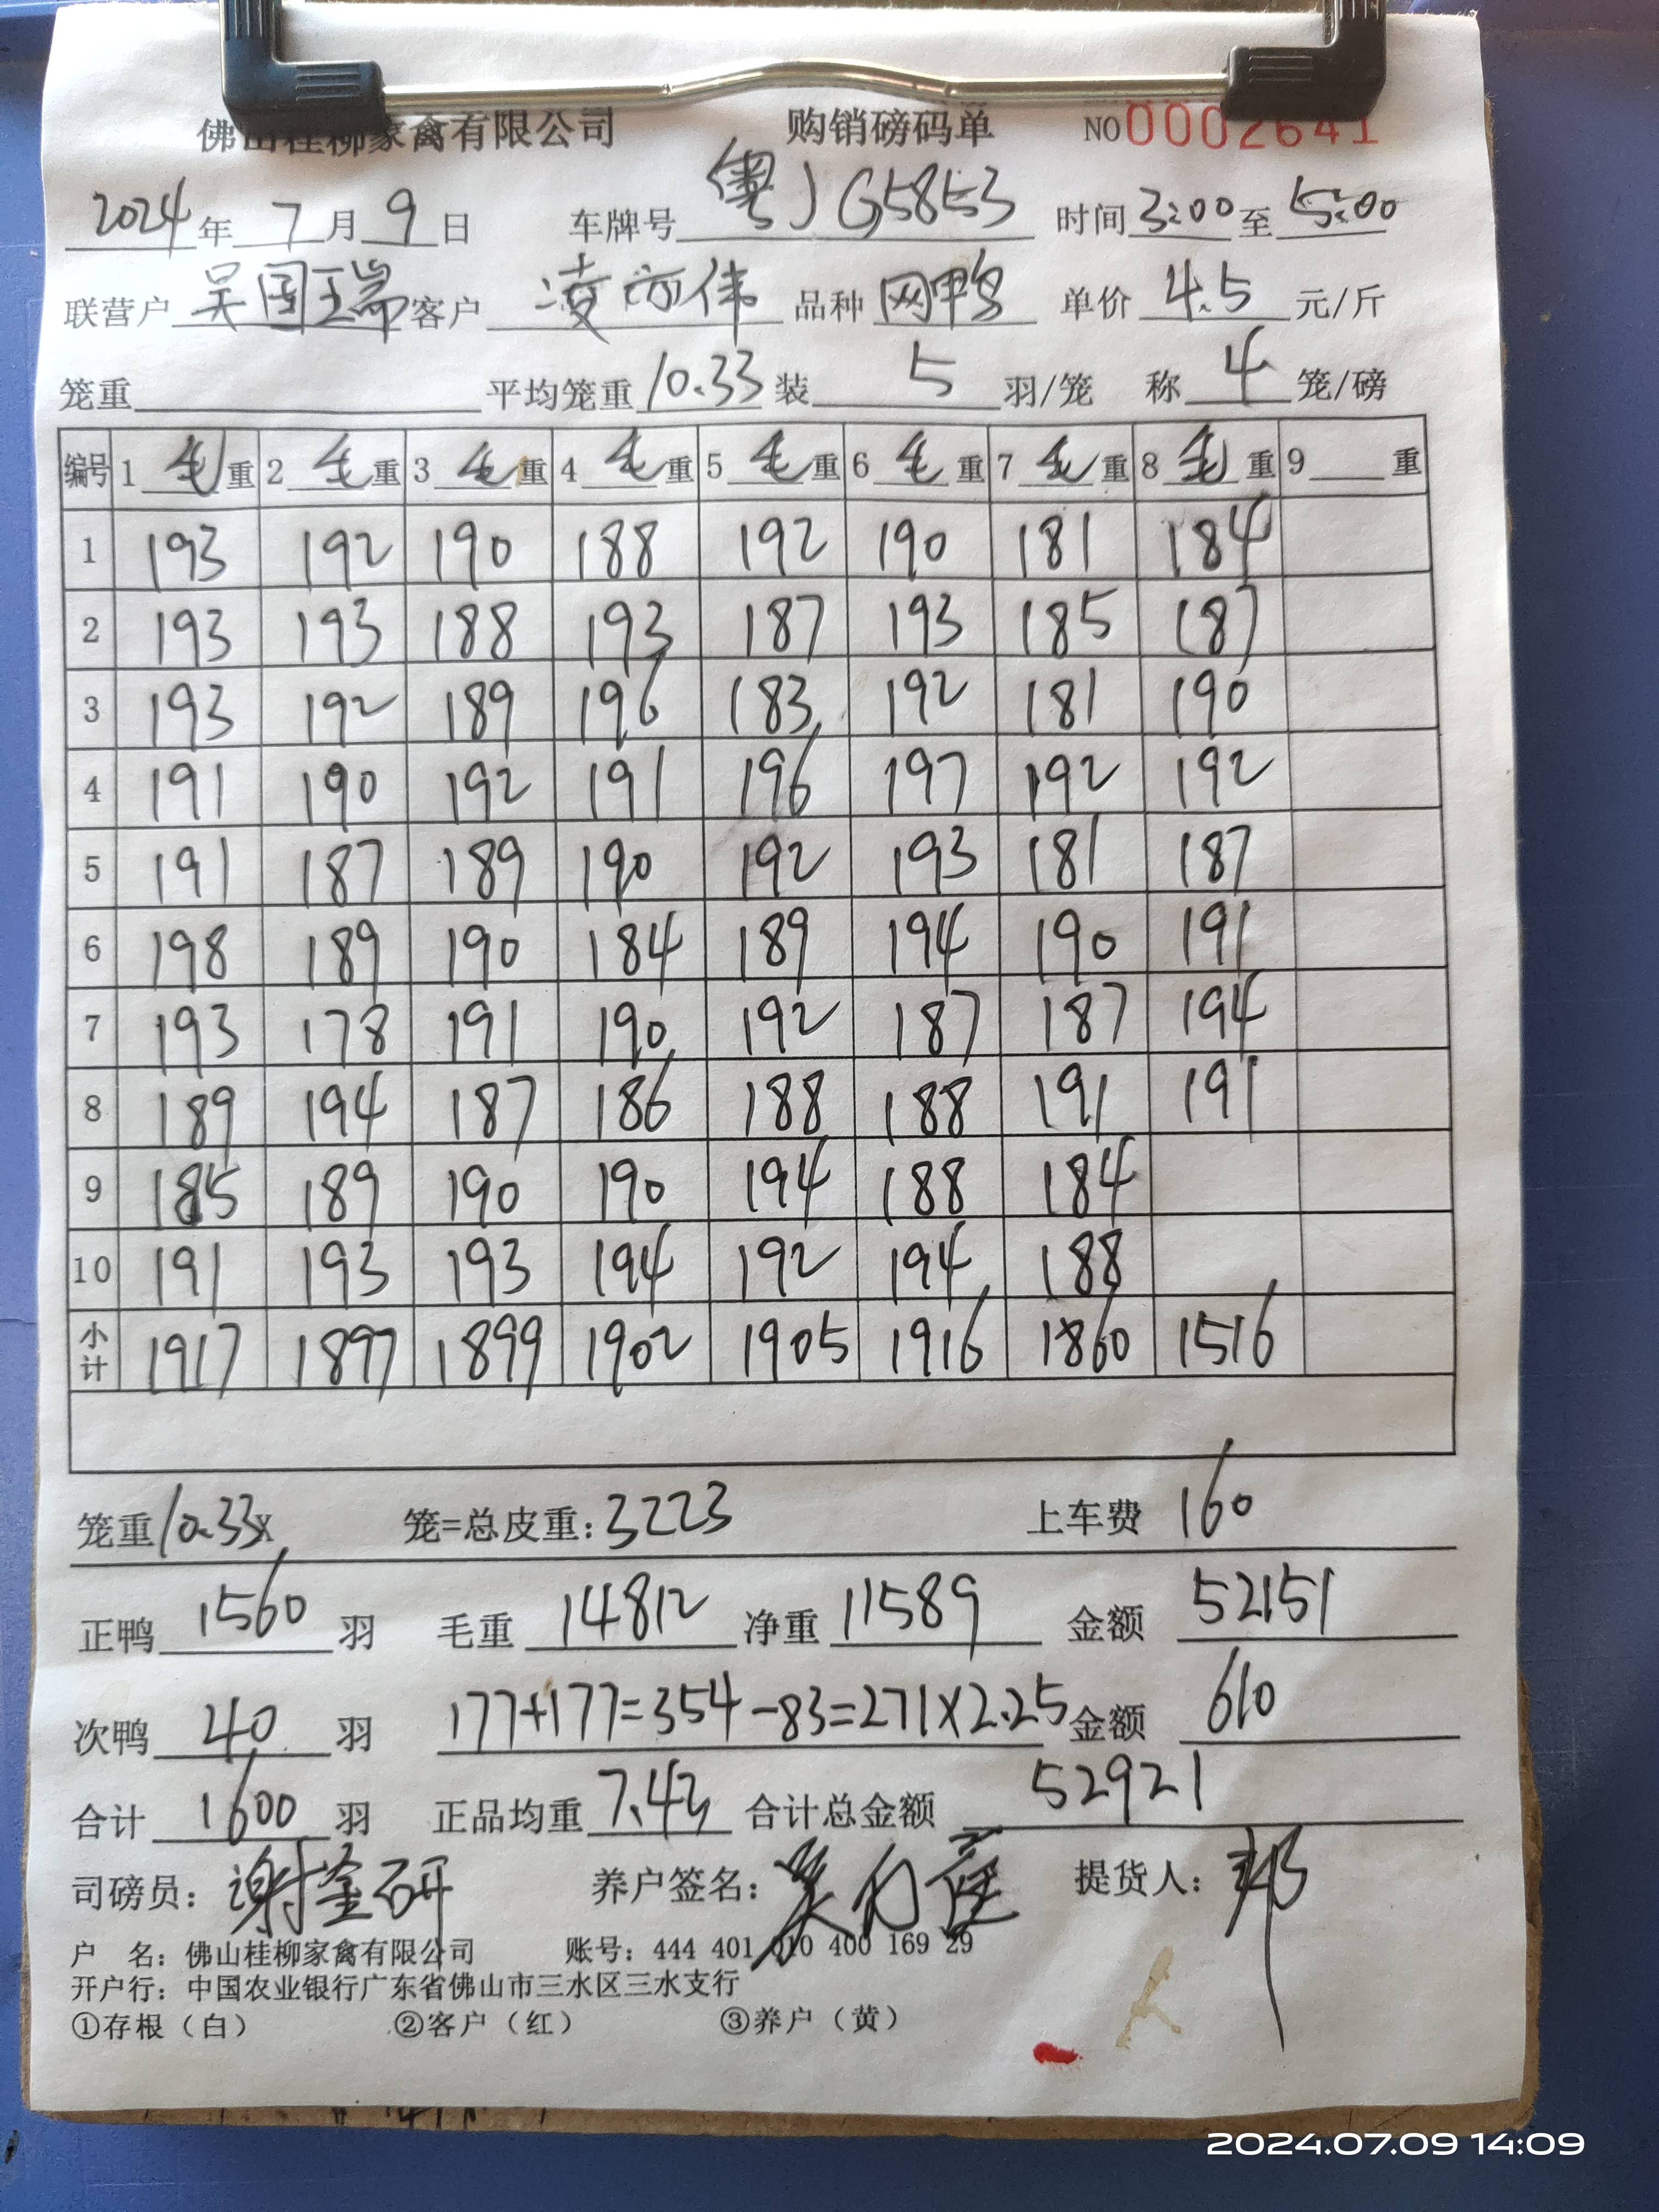 佛山桂柳家禽有限公司 购销磅码单 NO0002641
2024年7月9日 车牌号粤JG5853 时间3:00至5:00
联营户吴国瑞客户凌 伟 品种网鸭 单价4.5元/斤
笼重 平均笼重10.33装5羽/笼 称4笼/磅
编号 1毛重 2毛重 3毛重 4毛重 5毛重 6毛重 7毛重 8毛重 9重
1 193 192 190 188 192 190 181 184
2 193 193 188 193 187 193 185 187
3 193 192 189 196 183 192 181 190
4 191 190 192 191 196 197 192 192
5 191 187 189 190 192 193 181 187
6 198 189 190 184 189 194 190 191
7 193 178 191 190 192 187 187 194
8 189 194 187 186 188 188 191 191
9 185 189 190 190 194 188 184
10 191 193 193 194 192 194 188
小计 1917 1897 1899 1902 1905 1916 1860 1516
笼重10.33x 笼=总皮重:3223 上车费 160
正鸭1560羽 毛重14812净重11589 金额52151
次鸭40羽 177+177=354-83=271×2.25金额610
合计1600羽 正品均重7.43 合计总金额52921
司磅员: 养户签名: 提货人:
户 名: 佛山桂柳家禽有限公司 账号: 444 401 010 400 169 29
开户行: 中国农业银行广东省佛山市三水区三水支行
①存根（白） ②客户（红） ③养户（黄）
2024.07.09 14:09